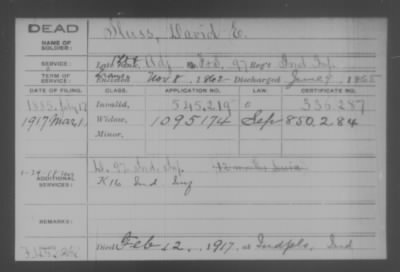 DEAD
NAME OF SOLDIER: Huss, David E.
SERVICE: Late Rank, Adj 97 Reg't Ind Inf
TERM OF SERVICE: Enlisted Nov 8, 1862 Discharged June 9, 1865
DATE OF FILING. CLASS. APPLICATION NO. LAW. CERTIFICATE NO.
1885 July Invalid, 545,219 336.287
1917 Mar 1 Widow, 1095174 Sep 850,284
Minor,
97 Ind. Inf.
ADDITIONAL SERVICES: K 16 Ind Inf
REMARKS:
Died Feb 12, 1917, at Indpls, Ind